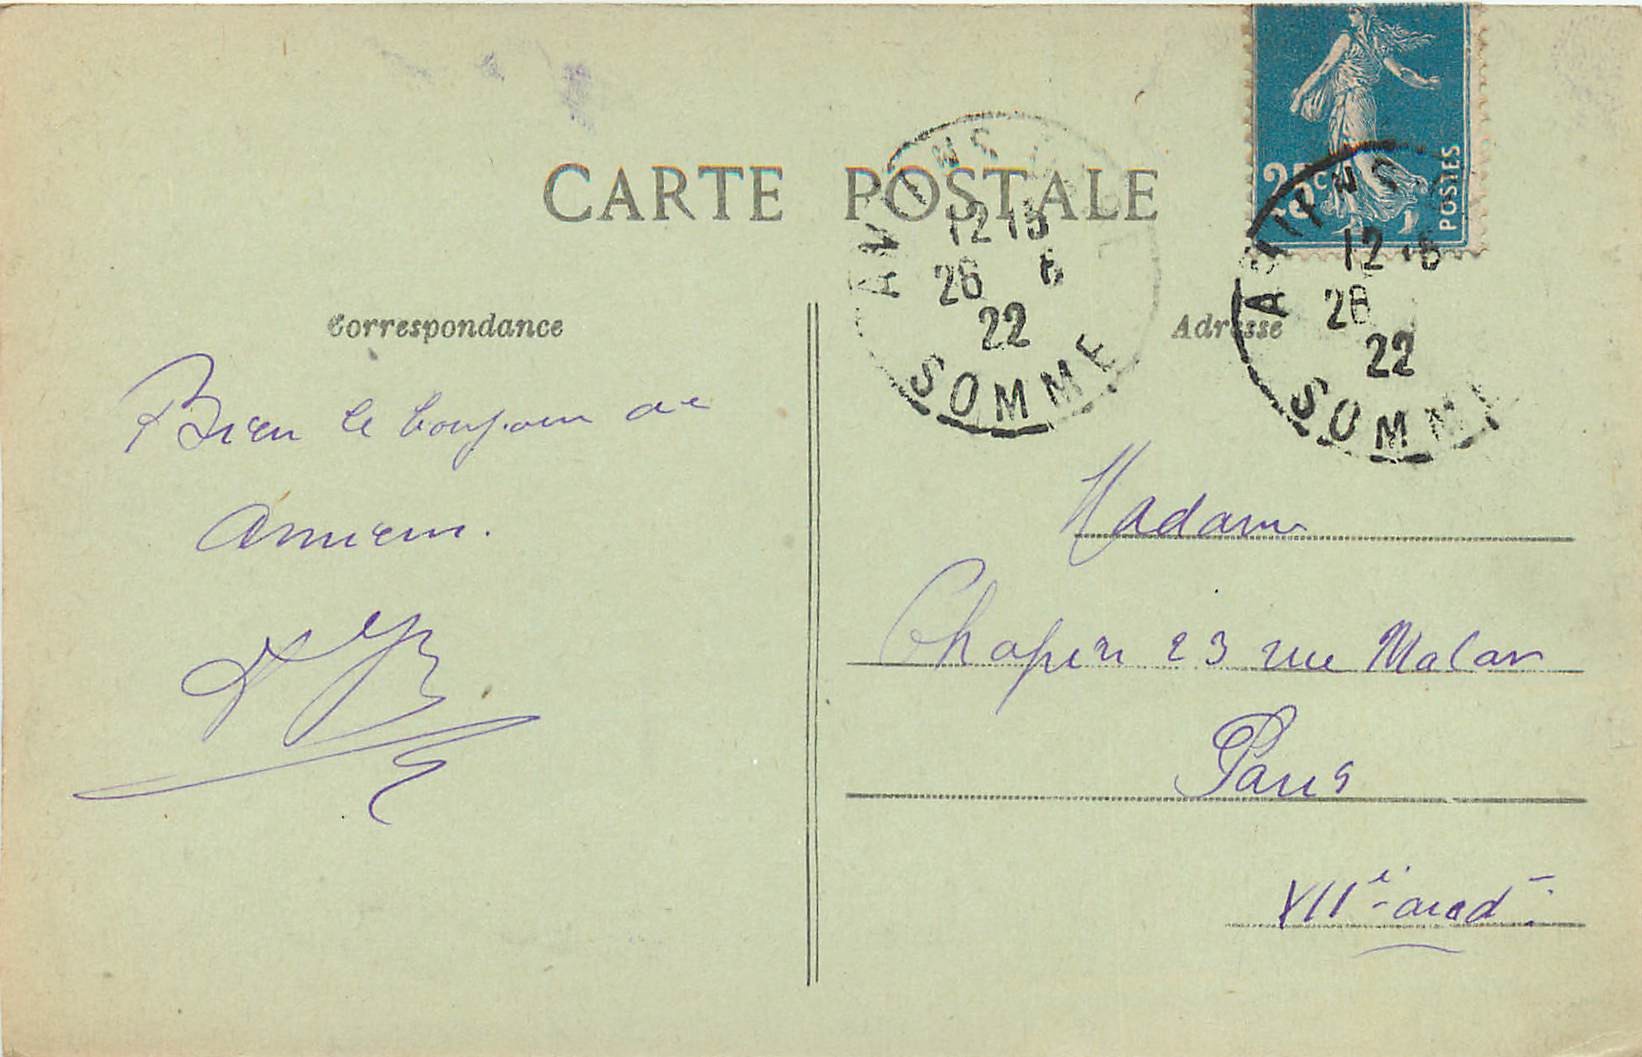 CARTE POSTALE
25c
POSTES
AMIENS
12 15
26 6
22
SOMME
AMIENS
12
26
22
SOMME
Correspondance
Adresse
Bien le bonjour de
Amiens.
Madame
Chapin 23 rue Malar
Paris
VIIe arrdt